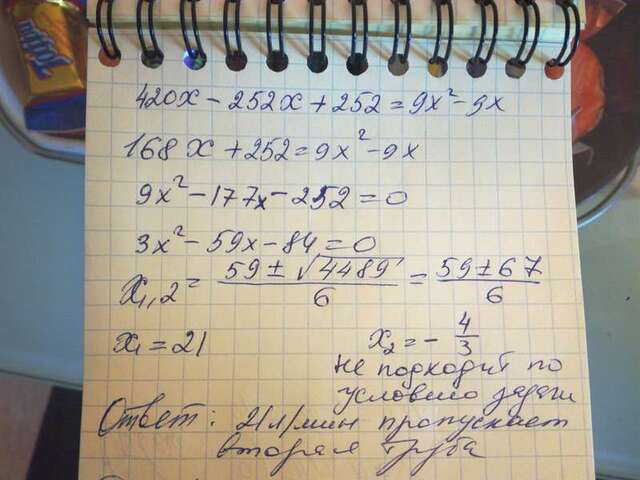 420x - 252x + 252 = 9x² - 9x
168x + 252 = 9x² - 9x
9x² - 177x - 252 = 0
3x² - 59x - 84 = 0
x₁,₂ = (59 ± √4489)/6 = (59 ± 67)/6
x₁ = 21 x₂ = - 4/3
не подходит по
условию задачи
Ответ: 21 л/мин пропускает
вторая труба